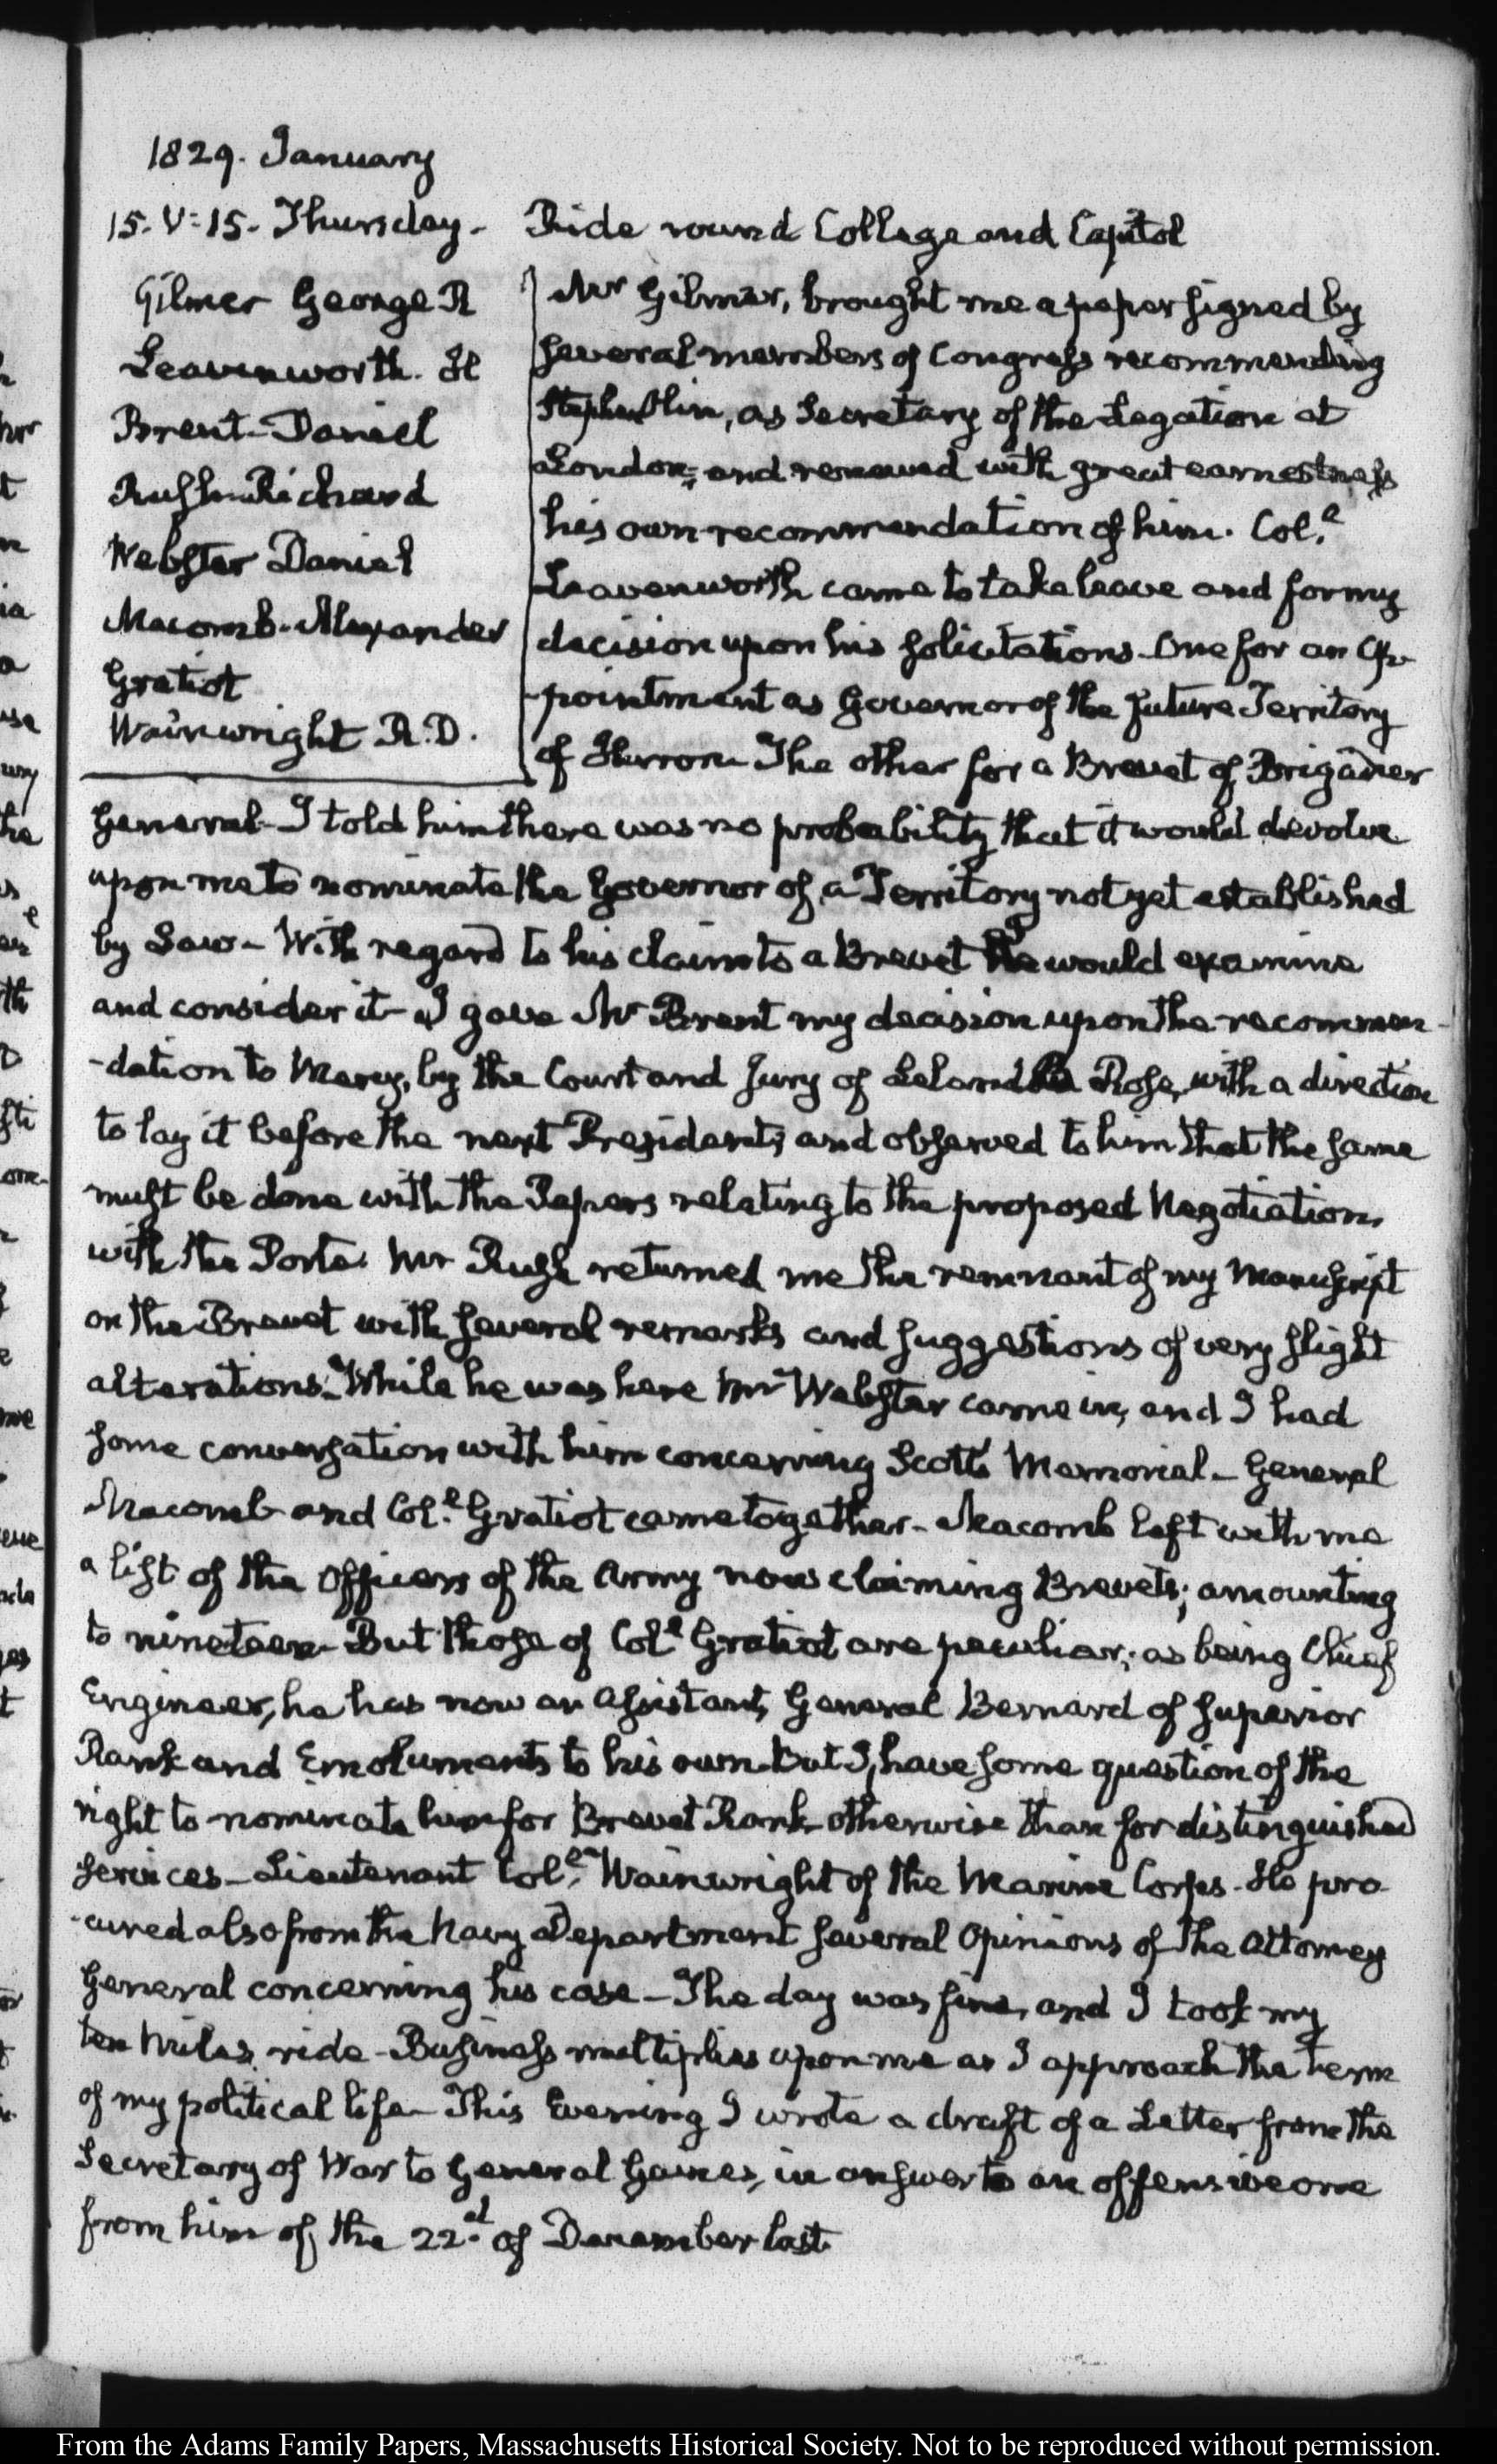 1829. January
15. V:15. Thursday. Ride round College and Capitol
Gilmer George R
Leavenworth. H
Brent. Daniel
Rush Richard
Webster Daniel
Macomb. Alexander
Gratiot
Wainwright R.D.
Mr Gilmer, brought me a paper signed by
several members of Congress recommending
Stephen Olin, as Secretary of the Legation at
London; and renewed with great earnestness
his own recommendation of him. Coll.
Leavenworth came to take leave and for my
decision upon his solicitations. One for an Ap-
-pointment as Governor of the future Territory
of Huron. The other for a Brevet of Brigadier
General. I told him there was no probability that it would devolve
upon me to nominate the Governor of a Territory not yet established
by Law. With regard to his claim to a Brevet I would examine
and consider it. I gave Mr Brent my decision upon the recommen-
-dation to Mercy, by the Court and Jury of Leland Rose, with a direction
to lay it before the next President; and observed to him that the same
must be done with the Papers relating to the proposed Negotiation,
with the Porte. Mr Rush returned me the remnant of my Manuscript
on the Brevet with several remarks and suggestions of very slight
alterations. While he was here Mr Webster came in, and I had
some conversation with him concerning Scott's Memorial. General
Macomb and Coll. Gratiot came together. Macomb left with me
a list of the Officers of the Army now claiming Brevets; amounting
to nineteen. But those of Coll Gratiot are peculiar; as being Chief
Engineer, he has now an Assistant, General Bernard of superior
Rank and Emoluments to his own. But I, have some question of the
right to nominate him for Brevet Rank otherwise than for distinguished
services. Lieutenant Coll. Wainwright of the Marine Corps. He pro-
-cured also from the Navy Department several Opinions of the Attorney
General concerning his case. The day was fine, and I took my
ten miles ride. Business multiplies upon me as I approach the term
of my political life. This Evening I wrote a draft of a Letter from the
Secretary of War to General Gaines, in answer to an offensive one
from him of the 22d. of December last.
From the Adams Family Papers, Massachusetts Historical Society. Not to be reproduced without permission.